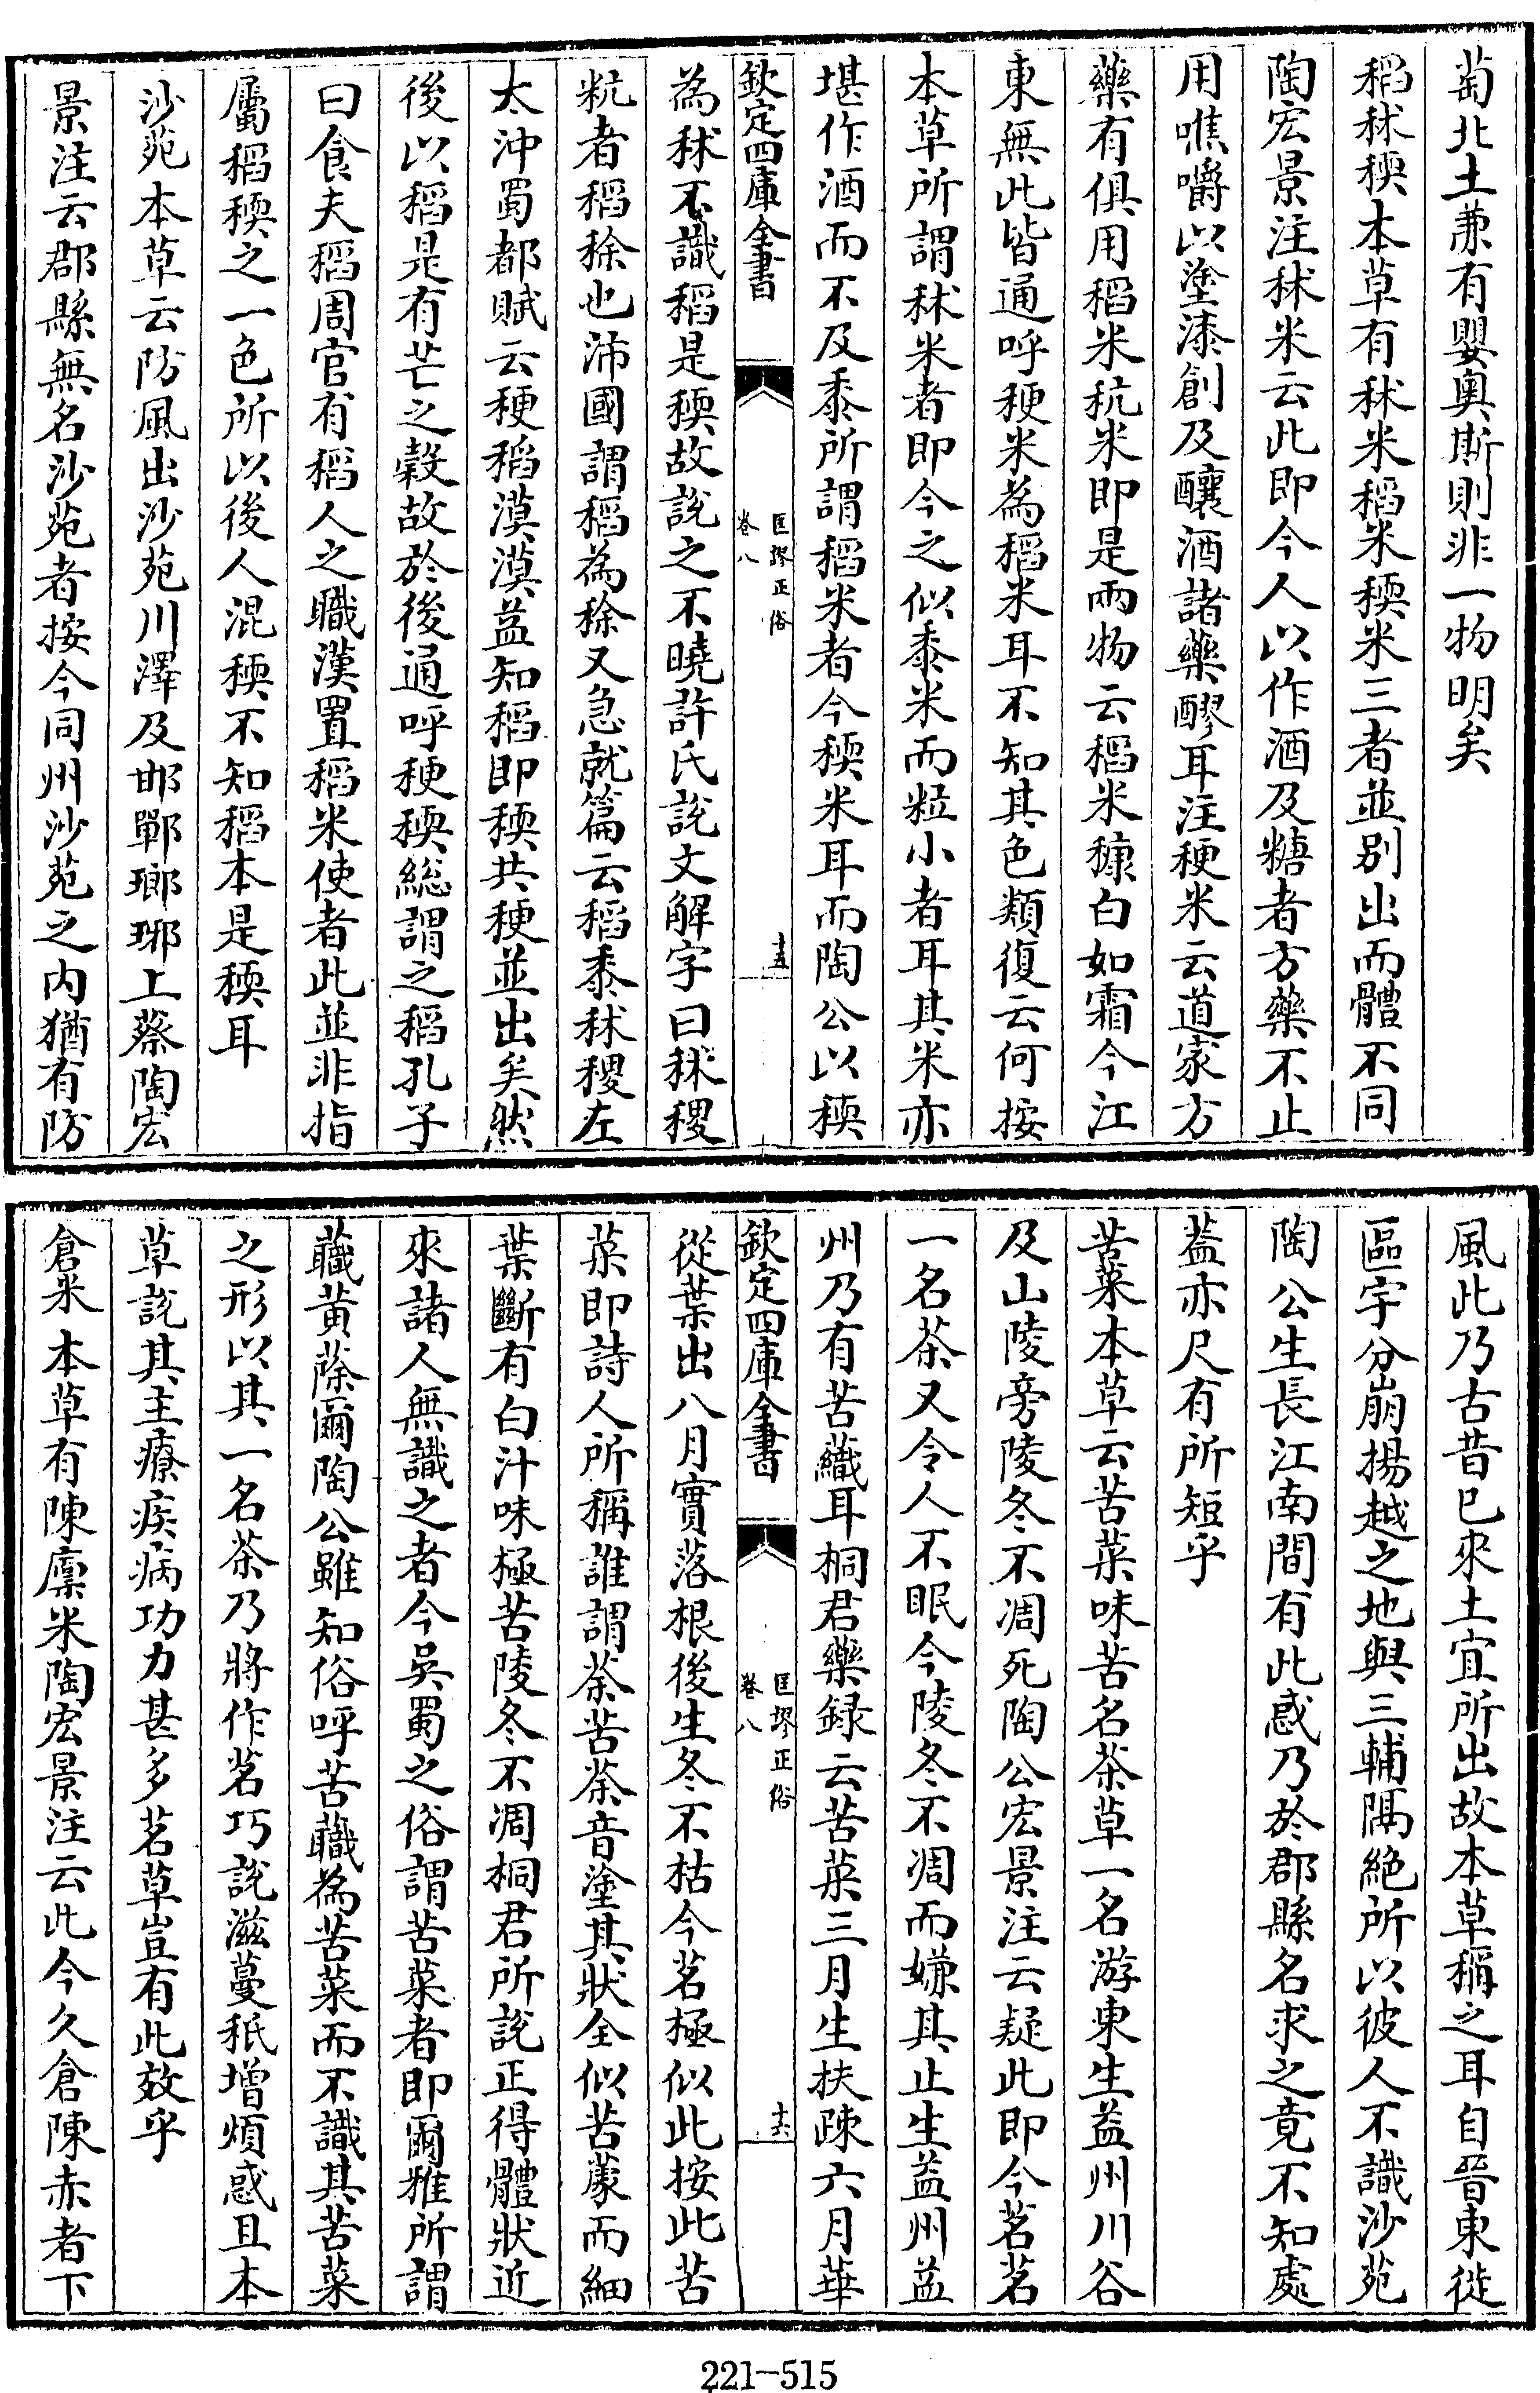 萄北土兼有嬰奥斯則非一物明矣
稻秫稬本草有秫米稻米稬米三者並别出而體不同
陶宏景注秫米云此即今人以作酒及糖者方藥不止
用噍嚼以塗漆創及釀酒諸藥醪耳注稉米云道家方
藥有俱用稻米秔米即是兩物云稻米穅白如霜今江
東無此皆通呼稉米為稻米耳不知其色類復云何按
本草所謂秫米者即今之似黍米而粒小者耳其米亦
堪作酒而不及黍所謂稻米者今稬米耳而陶公以稬
欽定四庫全書
匡謬正俗
卷八
十五
為秫不識稻是稬故說之不曉許氏說文解字曰秫稷
䊀者稻稌也沛國謂稻為稌又急就篇云稻黍秫稷左
太沖蜀都賦云稉稻漠漠益知稻即稬共稉並出矣然
後以稻是有芒之穀故於後通呼稉稬総謂之稻孔子
曰食夫稻周官有稻人之職漢置稻米使者此並非指
屬稻稬之一色所以後人混稬不知稻本是稬耳
沙苑本草云防風出沙苑川澤及邯鄲瑯琊上蔡陶宏
景注云郡縣無名沙苑者按今同州沙苑之内猶有防
風此乃古昔已來土宜所出故本草稱之耳自晉東徙
區宇分崩揚越之地與三輔隔絶所以彼人不識沙苑
陶公生長江南間有此惑乃於郡縣名求之竟不知處
蓋亦尺有所短乎
苦菜本草云苦菜味苦名荼草一名游東生益州川谷
及山陵旁陵冬不凋死陶公宏景注云疑此即今茗茗
一名荼又令人不眠今陵冬不凋而嫌其止生益州益
州乃有苦蘵耳桐君藥録云苦菜三月生扶疎六月華
欽定四庫全書
匡謬正俗
卷八
十六
從葉出八月實落根後生冬不枯今茗極似此按此苦
菜即詩人所稱誰謂荼苦荼音塗其狀全似苦蒙而細
葉斷有白汁味極苦陵冬不凋桐君所說正得體狀近
來諸人無識之者今吳蜀之俗謂苦菜者即爾雅所謂
蘵黄蒢爾陶公雖知俗呼苦蘵為苦菜而不識其苦菜
之形以其一名荼乃將作茗巧說滋蔓秖增煩惑且本
草說其主療疾病功力甚多茗草豈有此效乎
倉米本草有陳廩米陶宏景注云此今久倉陳赤者下
221-515